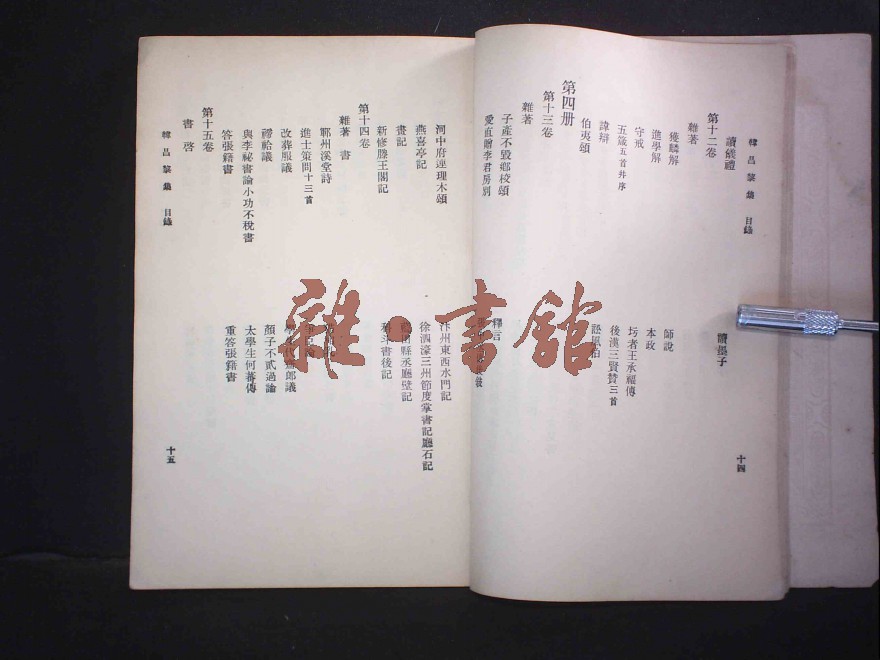 韓昌黎集 目錄 十四
讀儀禮 讀墨子
第十二卷
雜著
獲麟解 師說
進學解 本政
守戒 圬者王承福傳
五箴五首并序 後漢三賢贊三首
諱辯
伯夷頌
第四册
第十三卷
雜著
子產不毀鄉校頌 釋言
愛直贈李君房別
河中府連理木頌 汴州東西水門記
燕喜亭記 徐泗濠三州節度掌書記廳石記
畫記 縣丞廳壁記
新修滕王閣記 科斗書後記
第十四卷
雜著 書
鄆州溪堂詩
進士策問十三首
改葬服議 郎議
禘祫議 顏子不貳過論
與李祕書論小功不稅書 太學生何蕃傳
答張籍書 重答張籍書
第十五卷
書 啓
韓昌黎集 目錄 十五
雜·書館